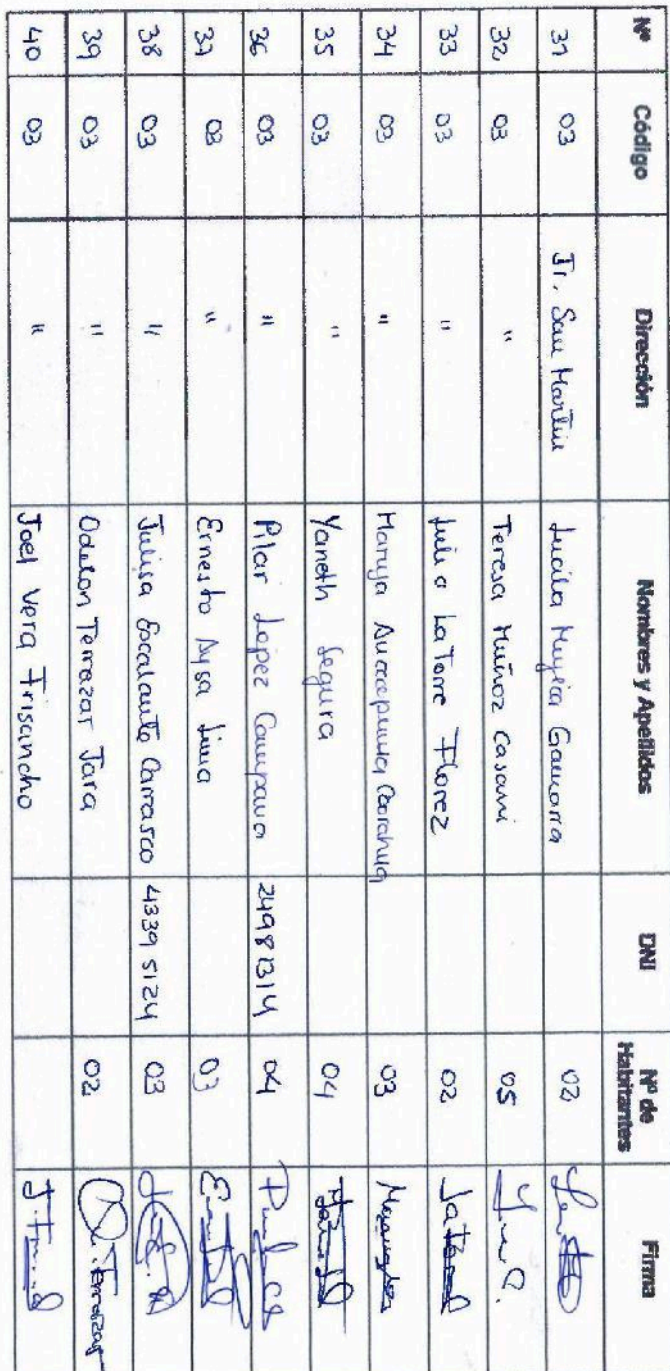 Nº Código Dirección Nombres y Apellidos DNI Nº de Habitantes Firma
31 03 Jr. San Martin Lucila Gamarra 02
32 03 " Teresa Muñoz Casani 05
33 03 " Julio LaTorre Florez 02
34 03 " Maruja 03
35 03 " Yaneth Segura 04
36 03 " Pilar Lopez Campana 04
37 03 " Ernesto Aysa Lima 03
38 03 " Julisa Escalante Carrasco 4339 5124 03
39 03 " Odelon Terrazar Jara 02 Terrazar
40 03 " Joel Vera Frisancho